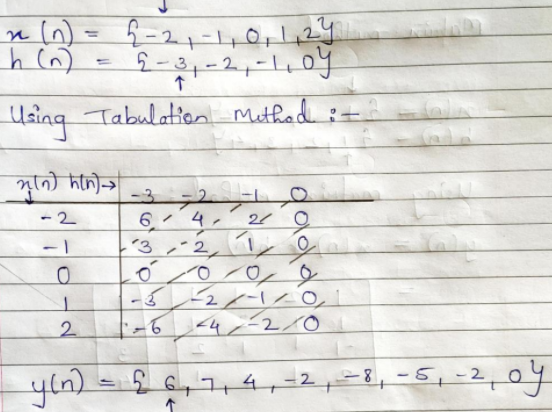 ↓
x(n) = {-2, -1, 0, 1, 2}
h(n) = {-3, -2, -1, 0}
↑
Using Tabulation Method :-
x(n) h(n)→ -3 -2 -1 0
↓
-2 6 4 2 0
-1 3 2 1 0
0 0 0 0 0
1 -3 -2 -1 0
2 -6 -4 -2 0
y(n) = {6, 7, 4, -2, -8, -5, -2, 0}
↑